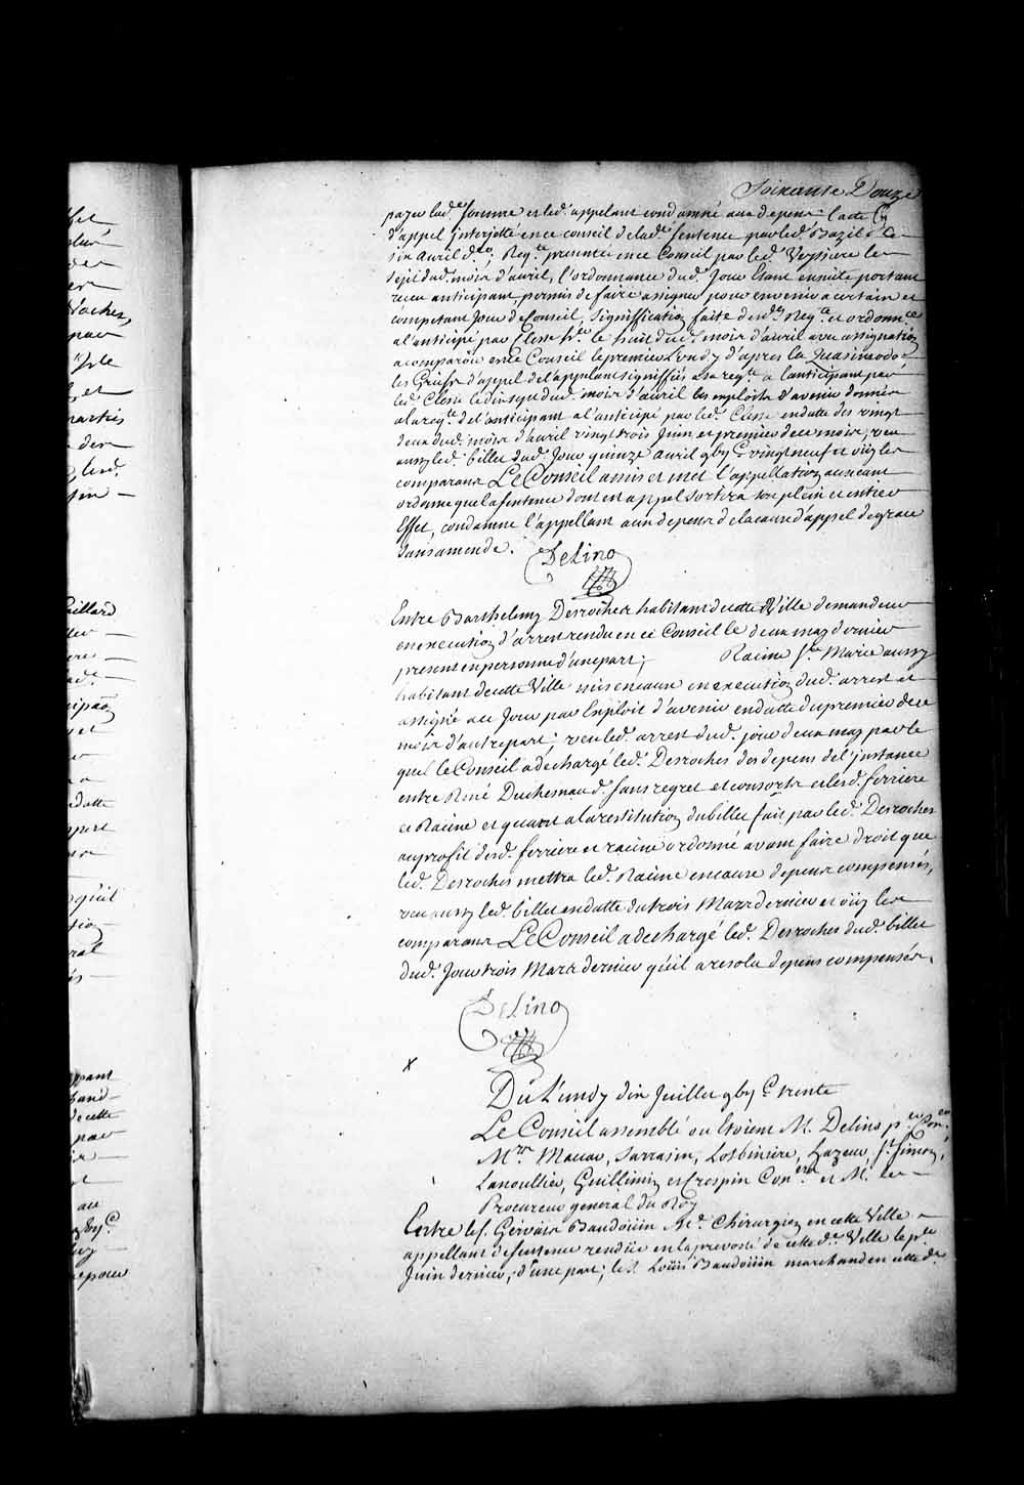 Soixante Douze
payer lad.e somme et led. appelant condamné aux depens l'acte
d'appel interjetté en ce conseil de lad.e sentence par led. Bazil le
six avril d.er, Req.te presentée en ce Conseil par led. Veyssiere le
sept dud. mois d'avril, l'ordonnance dud. Jour Etant ensuite portant
receu anticipant, permis de faire assigner pour en venir a certain et
competant Jour de Conseil, signiffication faite desd. Req.te et ordonn.ce
a l'anticipé par Clesse h.er le huit dud. mois d'avril avec assignation
a comparoir en ce Conseil le premier Lundy d'apres la Quasimodo
les Griefs d'appel de l'appelant signiffiés a la req.te a l'anticipant par
led. Clesse le dix sept dud. mois d'avril les exploits d'avenir donnés
a la req.te de l'anticipant a l'anticipé par led. Clesse en datte des vingt
deux dud. mois d'avril vingt trois Juin et premier de ce mois, veu
aussy led. billet dud. Jour quinze avril gbij.C vingt neuf et oüy les
comparans Le Conseil a mis et met l'appellation au neant
ordonne que la sentence dont est appel sortira son plein et entier
Effet, condamne l'appellant aux depens de la cause d'appel de grace
sans amende.
Delino
Entre Barthelemy Desroches habitant de cette Ville demandeur
en execution d'arrest rendu en ce Conseil le deux may dernier
present en personne d'une part; Racine S.te Marie aussy
habitant de cette Ville mis en cause en execution dud. arrest et
assigné a ce Jour par Exploit d'avenir en datte du premier de ce
mois d'autre part; veu led. arrest dud. jour deux may par le
quel le Conseil a dechargé led. Desroches des depens de l'instance
entre René Duchesnau d. sans regret et consorts et lesd. ferriere
et Racine et quant a la restitution du billet fait par led. Desroches
au profit desd. ferriere et racine ordonné avant faire droit que
led. Desroches mettra led. Racine en cause depens compensés,
veu aussy led. billet en datte du trois Mars dernier et oüy les
comparans Le Conseil a dechargé led. Desroches dud. billet
dud. Jour trois Mars dernier qu'il a resolu depens compensés.
Delino
Du Lundy dix Juillet gbij.C trente
Le Conseil assemblé ou Etoient M. Delino p.er Con.er
M.rs Macar, Sarrasin, Lotbiniere, Hazeur, S.t Simon,
Lanoullier, Guillimin et Crespin Con.ers et M. le
Procureur general du Roy
Entre le S. Gervais Baudoüin M.e Chirurgien en cette Ville
appellant de sentence rendüe en la prevosté de cette d.e Ville le
Juin dernier, d'une part; le S. Loüis Baudoüin marchand en cette d.e